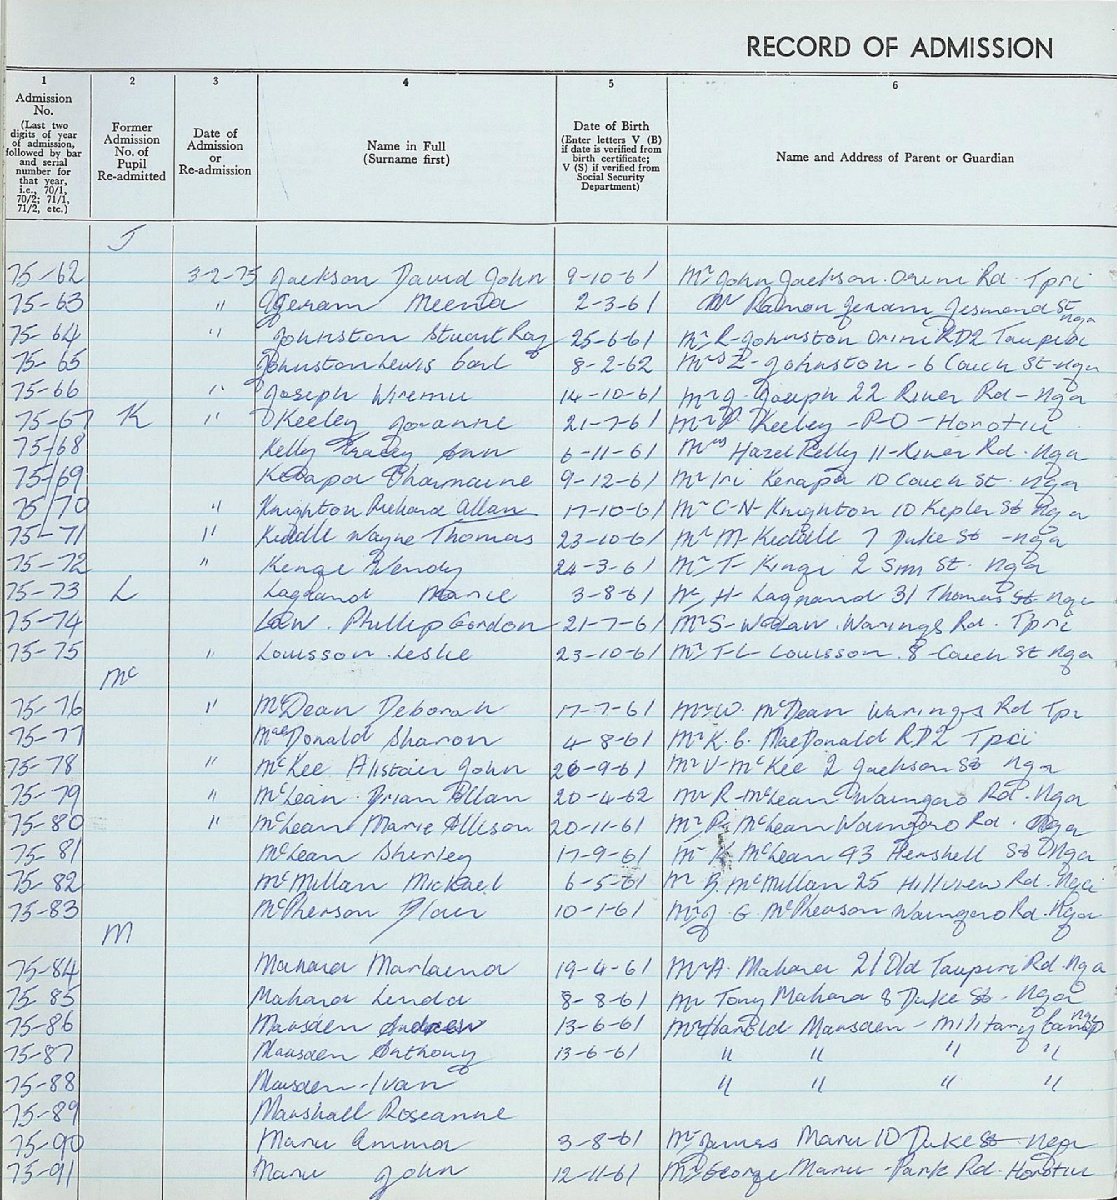 RECORD OF ADMISSION
1 2 3 4 5 6
Admission No. (Last two digits of year of admission, followed by bar and serial number for that year, i.e., 70/1, 70/2; 71/1, 71/2, etc.)
Former Admission No. of Pupil Re-admitted
Date of Admission or Re-admission
Name in Full (Surname first)
Date of Birth (Enter letters V (B) if date is verified from birth certificate; V (S) if verified from Social Security Department)
Name and Address of Parent or Guardian
J
75-62 3-2-75 Jackson David John 9-10-61 Mr John Jackson. Orini Rd. Tpri
75-63 " Jeram Meena 2-3-61 Mr Raman Jeram Jesmond St Nga
75-64 " Johnston Stuart Ray 25-6-61 Mr R-Johnston Orini RD2 Taupiri
75-65 Johnston Lewis Earl 8-2-62 Johnston - 6 Couch St - Nga
75-66 " Joseph Wiremu 14-10-61 Mr J. Joseph 22 River Rd - Nga
75-67 K " Keeley Joeanne 21-7-61 Mr Keeley - P-O - Horotiu
75-68 Kelly Tracey Ann 6-11-61 Mrs Hazel Kelly 11-River Rd. Nga
75-69 Kerapa Charmaine 9-12-61 Mr Iri Kerapa 10 Couch St. Nga
75/70 " Knighton Richard Allan 17-10-61 Mr C-N-Knighton 10 Kepler St Nga
75-71 " Kiddle Wayne Thomas 23-10-61 Mr M-Kiddle 7 Duke St - Nga
75-72 " Kingi Wendy 24-3-61 Mr T- Kingi 2 Sim St. Nga
75-73 L Lagrand Marie 3-8-61 Mr H- Lagrand 31 Thomas St Nga
75-74 Law. Phillip Gordon 21-7-61 Mr S-W-Law. Warings Rd. Tpri
75-75 " Louisson Leslie 23-10-61 Mr T-L- Louisson. 8-Couch St Nga
Mc
75-76 " McDean Deborah 17-7-61 Mr W. McDean Warings Rd Tpi
75-77 MacDonald Sharon 4-8-61 Mr K. MacDonald RD2 Tpri
75-78 " McKee Alistair John 26-9-61 Mr V-McKee 2 Jackson St Nga
75-79 " McLean Brian Allan 20-4-62 Mr R-McLean Waingaro Rd. Nga
75-80 " McLean Marie Allison 20-11-61 Mr R. McLean Waingaro Rd. Nga
75-81 McLean Shirley 17-9-61 Mr McLean 93 Hershell St Nga
75-82 McMillan Michael 6-5-61 Mr McMillan 25 Hillview Rd. Nga
75-83 McPherson Blair 10-1-61 Mr J. G. McPherson Waingaro Rd. Nga
M
75-84 Mahara Marlaina 19-4-61 Mr A. Mahara 21 Old Taupiri Rd. Nga
75-85 Mahara Linda 8-8-61 Mr Tony Mahara 8 Duke St. Nga
75-86 Marsden Andrew 13-6-61 Mr Harold Marsden - Military Camp Nga
75-87 Marsden Anthony 13-6-61 " " " "
75-88 Marsden - Ivan " " " "
75-89 Marshall Roseanne
75-90 Maru Emma 3-8-61 Mr James Maru 10 Duke St Nga
75-91 Maru John 12-11-61 Mr George Maru - Park Rd. Horotiu